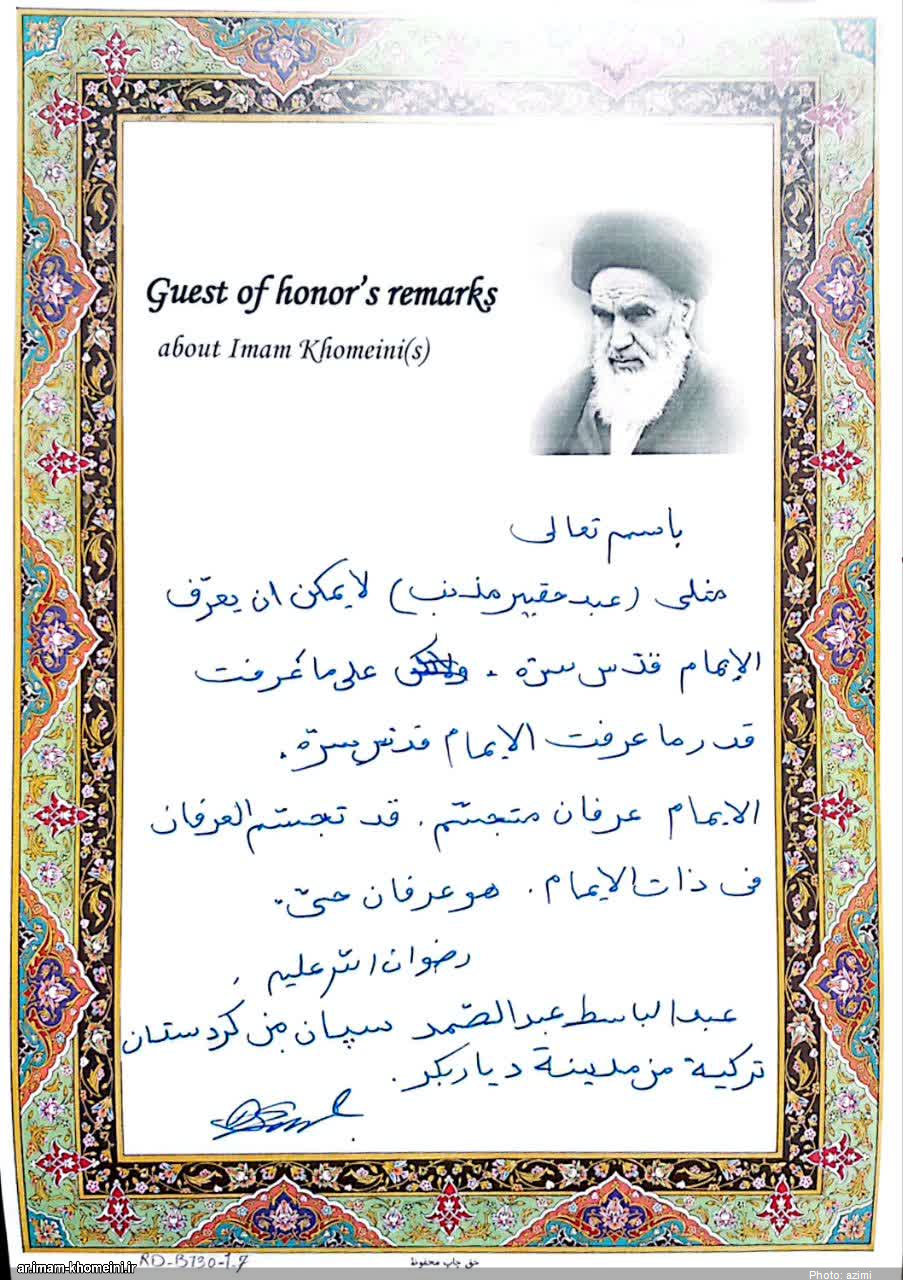 Guest of honor's remarks
about Imam Khomeini(s)
باسمه تعالى
مثلي (عبد حقير مذنب) لا يمكن ان يعرّف
الإمام قدّس سرّه . على ما عُرفت
قدر ما عرفت الإمام قدس سرّه .
الامام عرفان متجسّم . قد تجسّم العرفان
فى ذات الإمام . هو عرفان حىّ .
رضوان الله عليه ,
عبد الباسط عبد الصّمد سپان من كردستان
تركية من مدينة دياربكر .
RD-B730-1.7
حق چاپ محفوظ
ar.imam-khomeini.ir
Photo: azimi